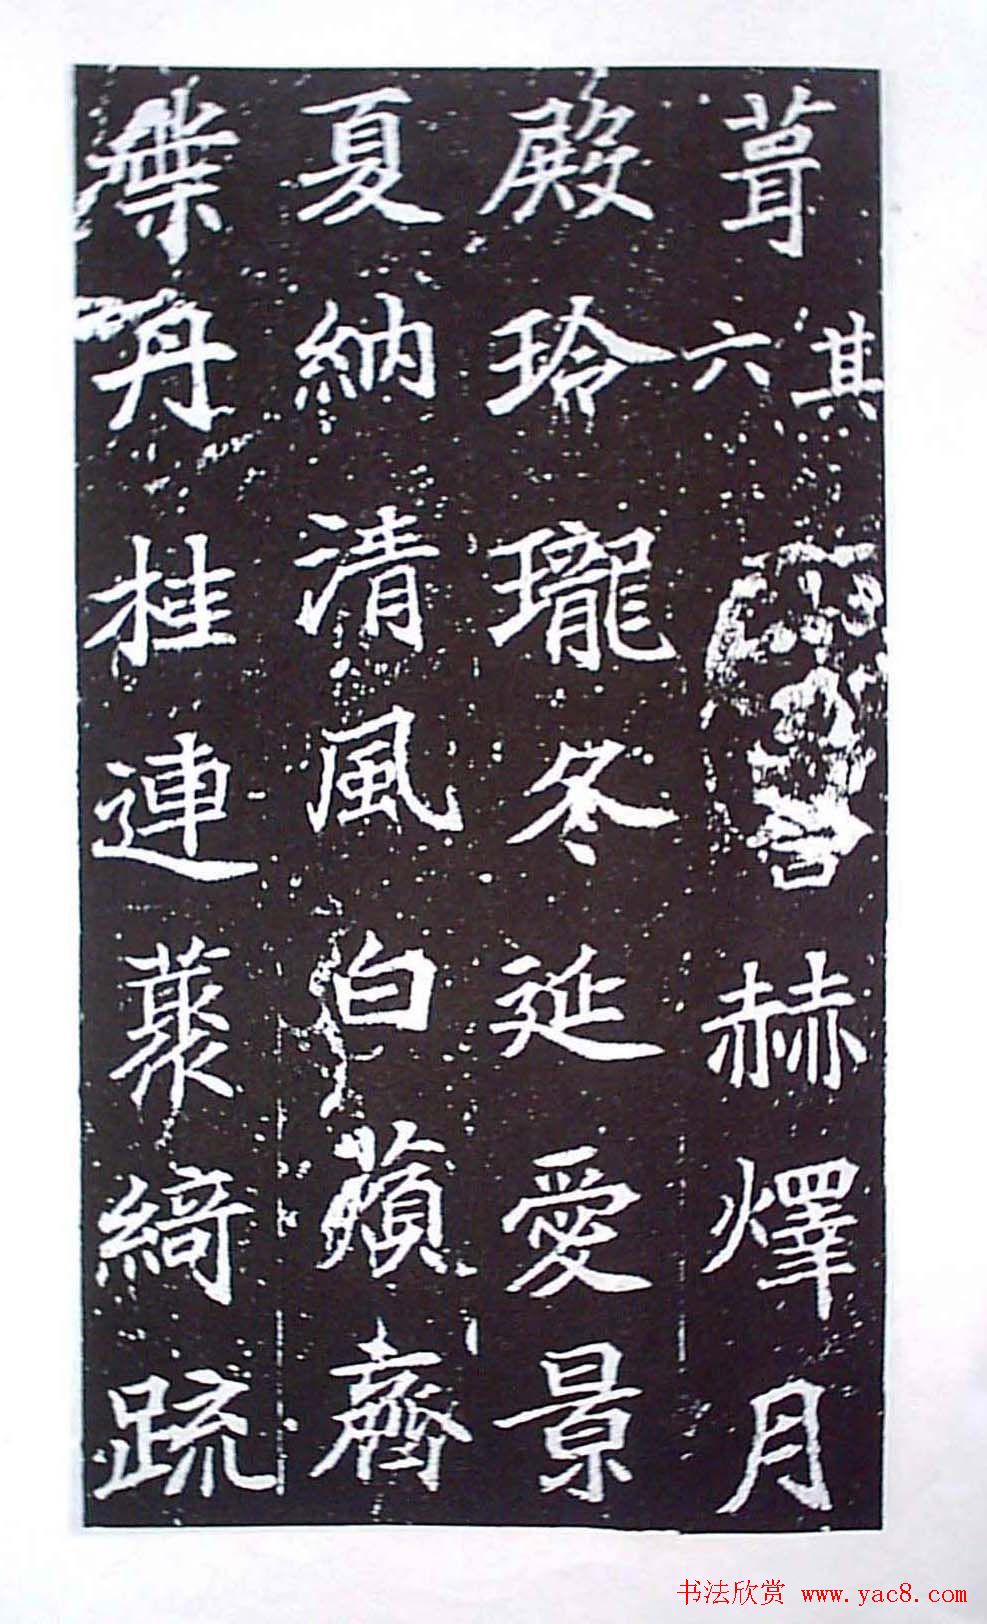 葺其六赫燡月
殿玲瓏冬延愛景
夏納清風白蘋齊
葉丹桂連藂綺疏
书法欣赏 www.yac8.com